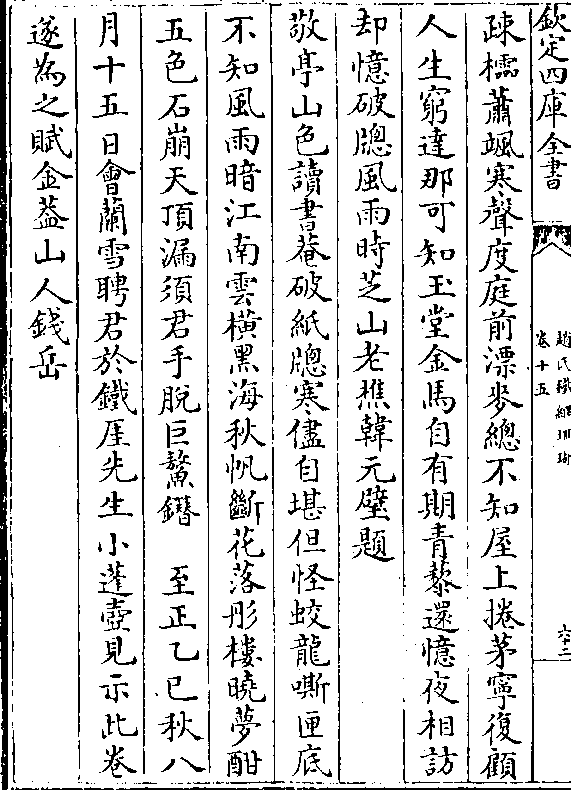 欽定四庫全書
趙氏鐵網珊瑚
卷十五
六十二
疎櫺蕭颯寒聲度庭前漂麥總不知屋上捲茅寧復顧
人生窮達那可知玉堂金馬自有期青藜還憶夜相訪
却憶破牕風雨時芝山老樵韓元璧題
敬亭山色讀書菴破紙牕寒儘自堪但怪蛟龍嘶匣底
不知風雨暗江南雲横黑海秋帆斷花落彤樓曉夢酣
五色石崩天頂漏須君手脫巨鰲鐕　至正乙巳秋八
月十五日會蘭雪聘君於鐵厓先生小蓬壺見示此卷
遂為之賦金葢山人錢岳